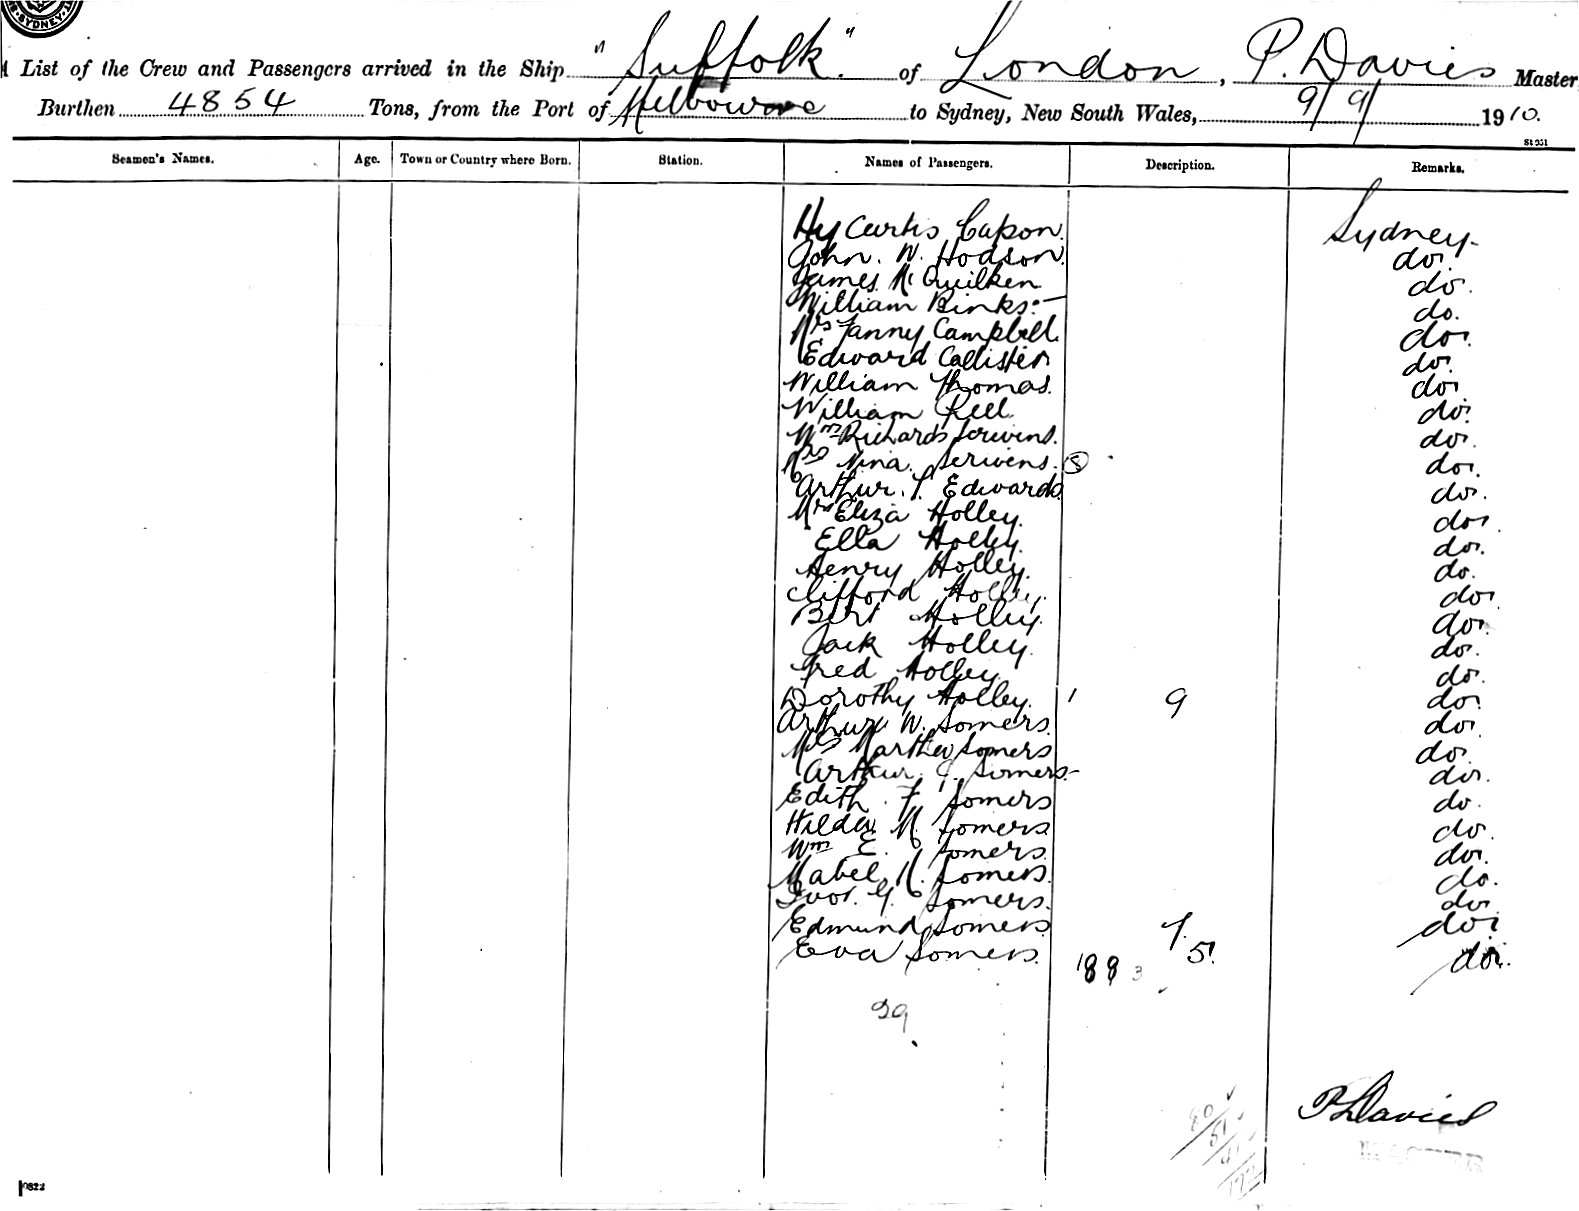 SYDNEY
List of the Crew and Passengers arrived in the Ship "Suffolk" of London, P. Davies Master
Burthen 4854 Tons, from the Port of Melbourne to Sydney, New South Wales, 9/9/ 1910.
St 951
Seamen's Names. Age. Town or Country where Born. Station. Names of Passengers. Description. Remarks.
Hy Curtis Capon. Sydney
John. W. Hodson. do.
James McQuilken do.
William Binks. do.
Mrs Fanny Campbell. do.
Edward Callister do.
William Thomas. do.
William Rell. do.
Wm Richards Scrivens. do.
Mrs Nina. Scrivens. 8 do.
Arthur. T. Edwards. do.
Mrs Eliza Holley. do.
Ella Holley. do.
Henry Holley. do.
Clifford Holley. do.
Bert Holley. do.
Jack Holley. do.
Fred Holley. do.
Dorothy Holley. 1 9 do.
Arthur W. Somers. do.
Mrs Martha Somers do.
Arthur J. Somers- do.
Edith. F. Somers do.
Hilda M. Somers do.
Wm E. Somers. do.
Mabel K. Somers. do.
Ivor. G. Somers. do.
Edmund Somers. 7. do.
Eva Somers. 1883 5. do.
29
P Davies
MASTER